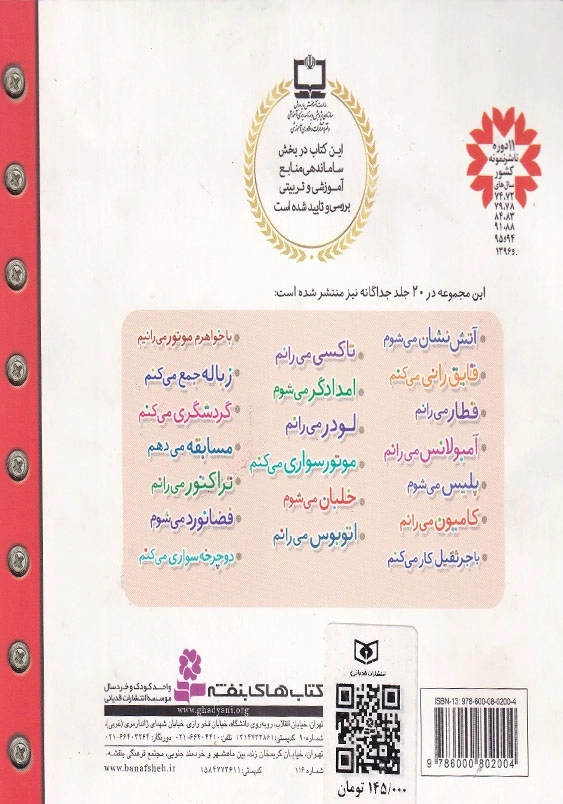 این کتاب در بخش
ساماندهی منابع
آموزشی و تربیتی
بررسی و تایید شده است
۱۱ دوره
ناشر نمونه
کشور
سال‌های
۷۴،۷۲
۷۹،۷۸
۸۴،۸۳
۹۱،۸۸
۹۵،۹۴
و ۱۳۹۶
این مجموعه در ۲۰ جلد جداگانه نیز منتشر شده است:
آتش‌نشان می‌شوم
قایق‌رانی می‌کنم
قطار می‌رانم
آمبولانس می‌رانم
پلیس می‌شوم
کامیون می‌رانم
با جرثقیل کار می‌کنم
تاکسی می‌رانم
امدادگر می‌شوم
لودر می‌رانم
موتورسواری می‌کنم
خلبان می‌شوم
اتوبوس می‌رانم
با خواهرم موتور می‌رانیم
زباله جمع می‌کنم
گردشگری می‌کنم
مسابقه می‌دهم
تراکتور می‌رانم
فضانورد می‌شوم
دوچرخه‌سواری می‌کنم
کتاب‌های بنفشه
واحد کودک و خردسال
موسسه انتشارات قدیانی
www.ghadyani.org
تهران، خیابان انقلاب، روبه‌روی دانشگاه، خیابان فخر رازی، خیابان شهدای ژاندارمری (غربی)،
شماره ۹۰ کدپستی: ۱۳۱۴۷۳۳۸۶۱ تلفن: ۶۶۴۰۴۴۱۰-۰۲۱ دورنگار: ۶۶۴۰۳۲۶۴-۰۲۱
تهران، خیابان کریمخان زند، بین ماهشهر و خردمند جنوبی، مجتمع فرهنگی بنفشه،
شماره ۱۱۶ کدپستی: ۱۵۸۴۷۷۳۶۱۱ www.banafsheh.ir
انتشارات قدیانی
۱۴۵/۰۰۰ تومان
ISBN-13: 978-600-08-0200-4
9 786000 802004